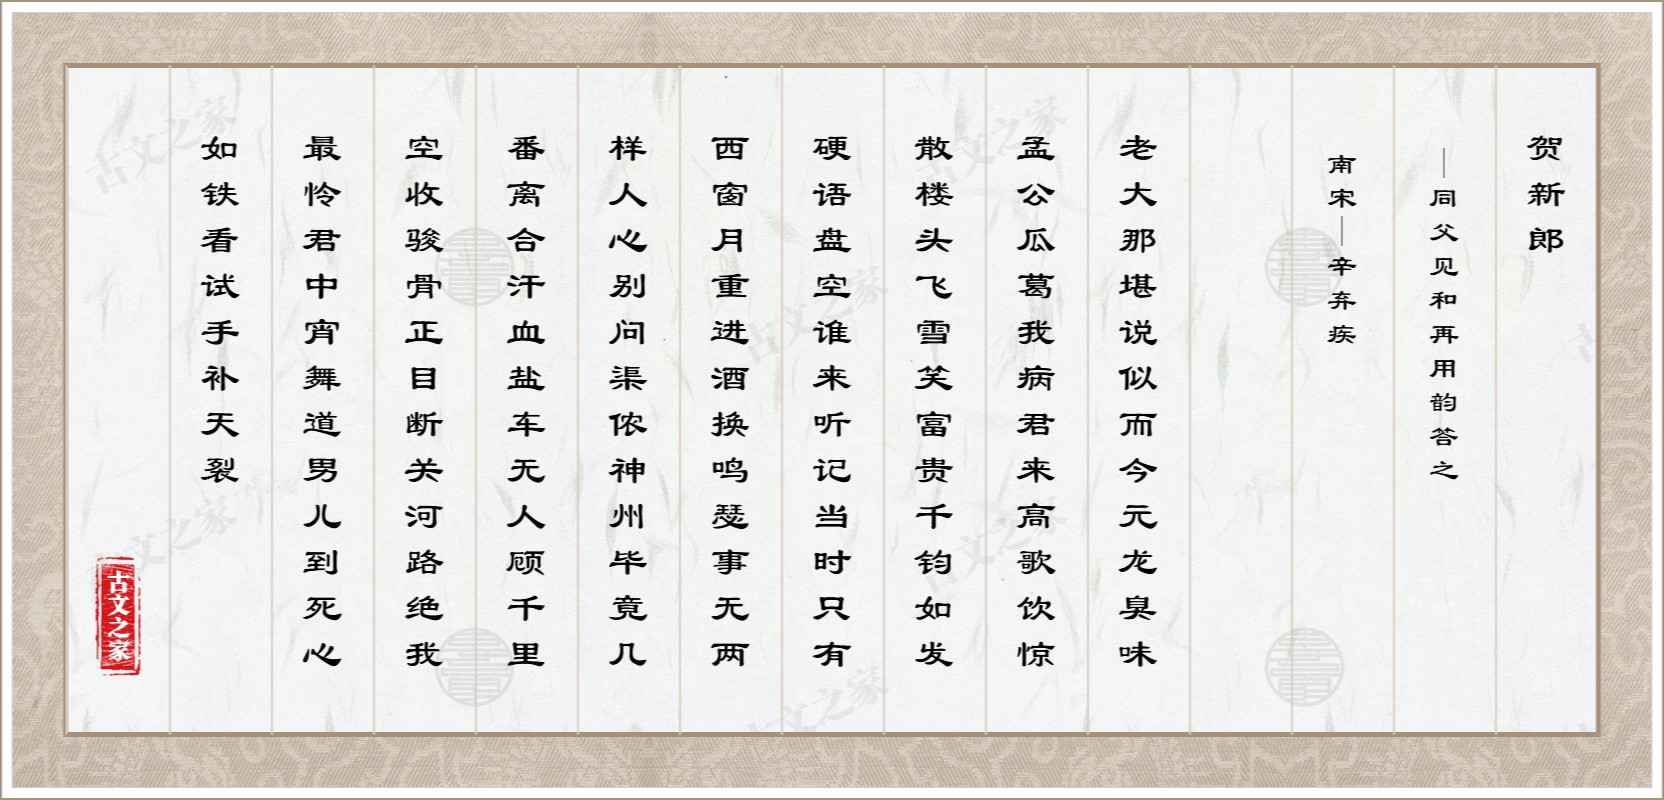 贺新郎
—同父见和再用韵答之
南宋—辛弃疾
老大那堪说似而今元龙臭味
孟公瓜葛我病君来高歌饮惊
散楼头飞雪笑富贵千钧如发
硬语盘空谁来听记当时只有
西窗月重进酒换鸣瑟事无两
样人心别问渠侬神州毕竟几
番离合汗血盐车无人顾千里
空收骏骨正目断关河路绝我
最怜君中宵舞道男儿到死心
如铁看试手补天裂
古文之家